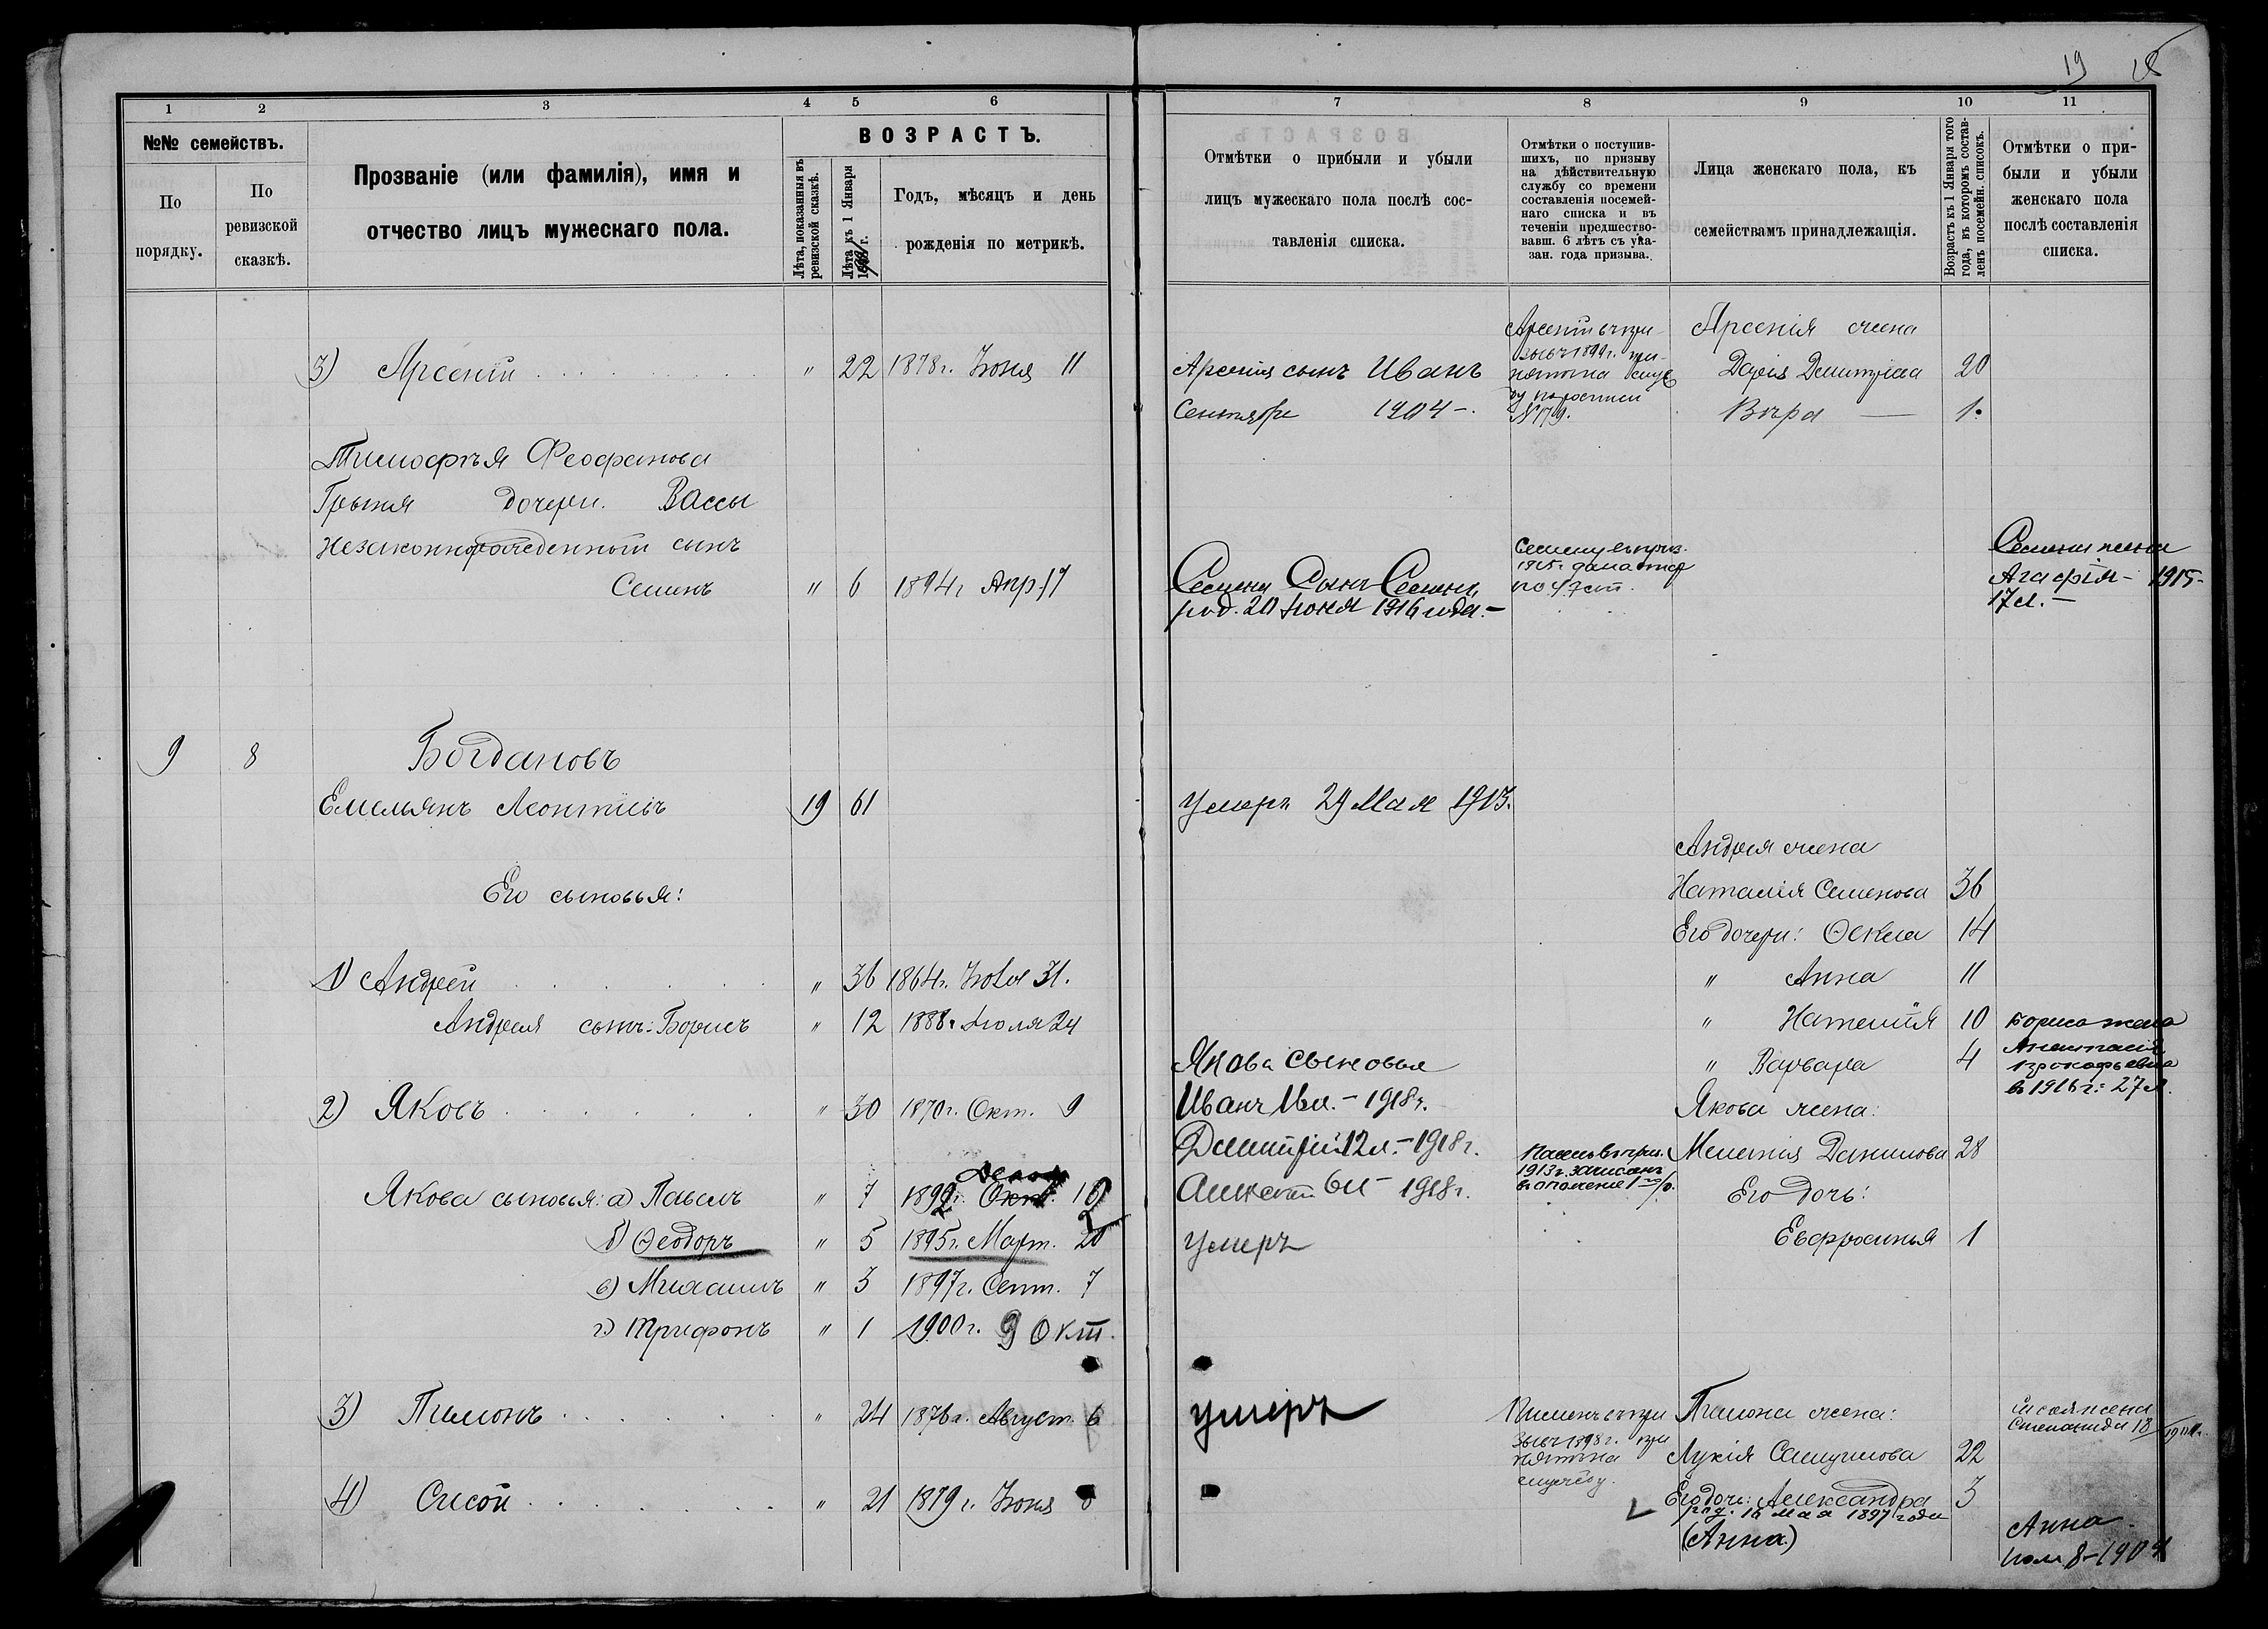 19
1
2
3
4
5
6
№№ семействъ.
По порядку.
По ревизской сказкѣ.
Прозваніе (или фамилія), имя и
отчество лицъ мужескаго пола.
ВОЗРАСТЪ.
Лѣта, показанныя въ ревизской сказкѣ.
Лѣта къ 1 Января г.
Годъ, мѣсяцъ и день
рожденія по метрикѣ.
3) Арсеній " 22 1878 г. Іюня 11
Тимофѣя Феофанова
дочери. Вассы
Незаконнорожденный сынъ
Семенъ " 6 1894 г. Апр. 17
9 8 Богдановъ
Емельянъ Леонтіевъ 19 61
Его сыновья:
1) Андрей " 36 1864 г. 31.
Андрея сынъ: Борисъ " 12 1888 г. Іюля 24
2) Яковъ " 30 1870 г. Окт. 9
Якова сыновья: а) Павелъ " 7 1892 г. Окт.
б) Ѳеодоръ " 5 1895 г. Март. 20
в) Михаилъ " 3 1897 г. Сент. 7
г) Трифонъ " 1 1900 г. 9 Окт.
3) Пименъ " 24 1876 г. Август. 6
4) Сисой " 21 1879 г. Іюня
7
8
9
10
11
Отмѣтки о прибыли и убыли
лицъ мужескаго пола послѣ сос-
тавленія списка.
Отмѣтки о поступив-
шихъ, по призыву
на дѣйствительную
службу со времени
составленія посемей-
наго списка и въ
теченіи предшество-
вавш. 6 лѣтъ съ ука-
зан. года призыва.
Лица женскаго пола, къ
семействамъ принадлежащія.
Возрастъ къ 1 Января того
года, въ которомъ состав-
ленъ посемейн. списокъ.
Отмѣтки о при-
были и убыли
женскаго пола
послѣ составленія
списка.
Арсенія сынъ Иванъ
Сентября 1904 -.
Арсентій въ при-
зывъ 1899 г. при-
нятъ на служ
бу по росписи
№ 179.
Арсенія жена
Дарія Дмитріева 20
Вѣра — 1.
Семена Сынъ Семенъ
род. 20 Іюня 1916 года. -
Семену въ приз.
1915 г. дана отср
по ст.
Семена жена
Агафія - 1915 -
17 л. -
Умеръ 29 Мая 1913.
Андрея жена
Наталія Семенова 36
Его дочери: Ѳекла 14
" Анна 11
" Наталія 10
" Варвара 4
Бориса жена
Анастасія
Прокофьевна
в 1916 г. 27 л.
Якова сыновья
Иванъ - 1918 г.
Дмитрій 12 л. - 1918 г.
Алексѣй 6 л - 1918 г.
умеръ
Павелъ въ приз.
1913 г. зачисленъ
в ополченіе 1
Якова жена:
Меланія Данилова 28
Его дочь:
Евфросинья 1
умеръ
Пименъ въ при
зывъ 1898 г. при
нятъ на
службу.
Пимена жена:
Лукія Самуилова 22
Его дочь: Александра 3
род. 16 мая 1897 года
(Анна)
Сисоя жена
Степанида 18
Анна
8 - 1904